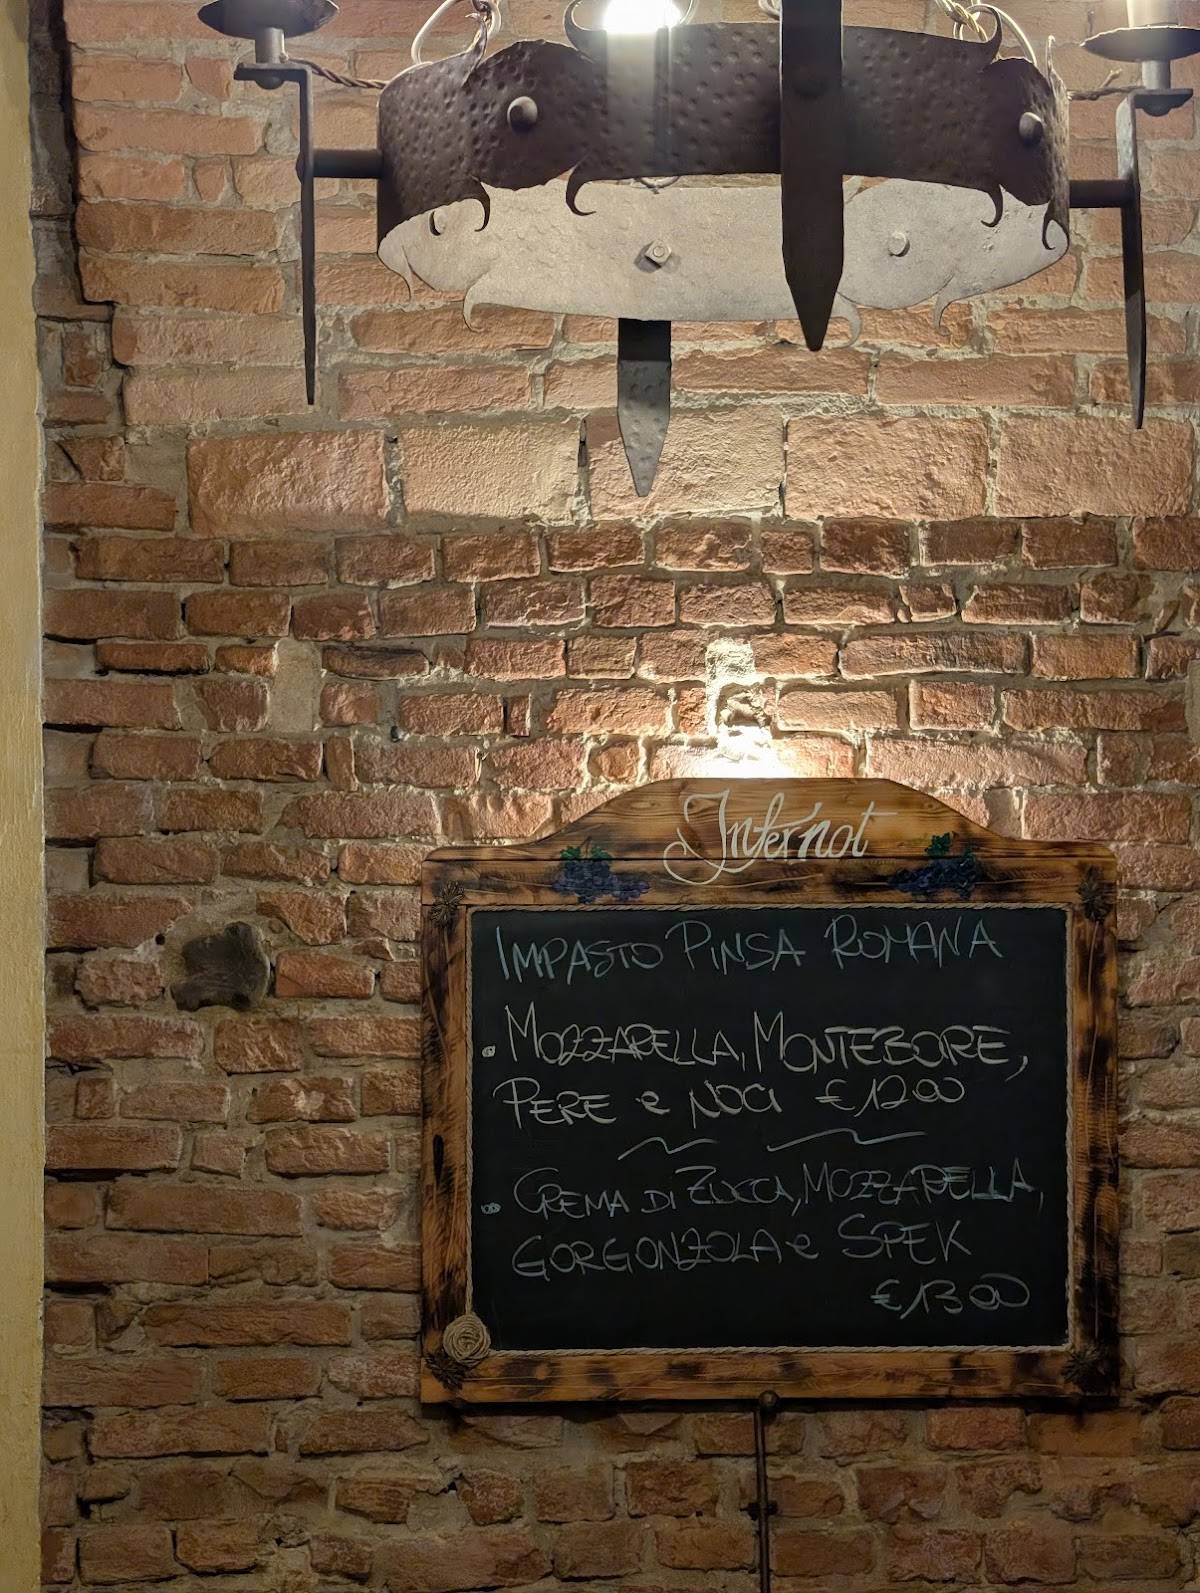 Infernot
IMPASTO PINSA ROMANA
MOZZARELLA, MONTEBORE,
PERE e NOCI €12 00
CREMA DI ZUCCA, MOZZARELLA,
GORGONZOLA e SPEK
€13 00